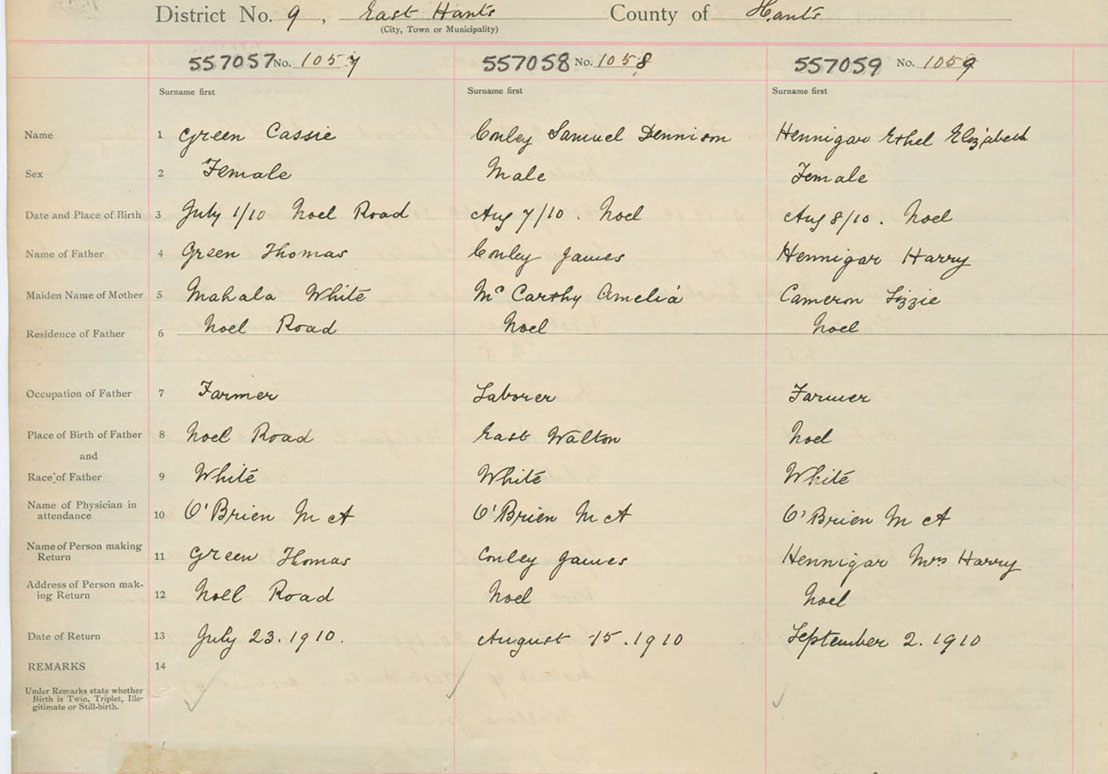 District No. 9, East Hants County of Hants
(City, Town or Municipality)
557057 No. 1057 557058 No. 1058 557059 No. 1059
Surname first Surname first Surname first
Name 1 Green Cassie Conley Samuel Dennison Hennigar Ethel Elizabeth
Sex 2 Female Male Female
Date and Place of Birth 3 July 1/10 Noel Road Aug 7/10. Noel Aug 8/10. Noel
Name of Father 4 Green Thomas Conley James Hennigar Harry
Maiden Name of Mother 5 Mahala White Mc Carthy Amelia Cameron Lizzie
Residence of Father 6 Noel Road Noel Noel
Occupation of Father 7 Farmer Laborer Farmer
Place of Birth of Father 8 Noel Road East Walton Noel
and
Race of Father 9 White White White
Name of Physician in
attendance 10 O'Brien M A O'Brien M A O'Brien M A
Name of Person making
Return 11 Green Thomas Conley James Hennigar Mrs Harry
Address of Person mak-
ing Return 12 Noel Road Noel Noel
Date of Return 13 July 23. 1910. August 15. 1910 September 2. 1910
REMARKS 14
Under Remarks state whether
Birth is Twin, Triplet, Ille-
gitimate or Still-birth.